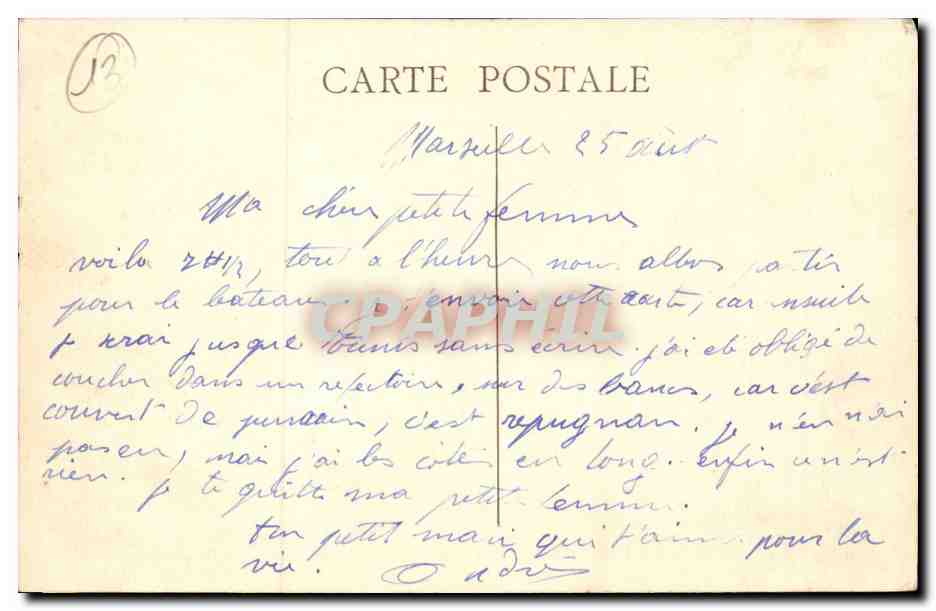 13
CARTE POSTALE
Marseille 25 août
Ma chère petite femme
voila 2H1/2, tout a l'heure nous allons partir
pour le bateau, je t'envoie cette carte, car ensuite
je serai jusque Tunis sans écrire. j'ai été obligé de
coucher dans un refectoire, sur des bancs, car c'est
couvert de punaises, c'est repugnan. je n'en n'ai
pas eu, mais j'ai les côtes en long. enfin ce n'est
rien. je te quitte ma petite femme.
ton petit mari qui t'aime pour la
vie. André
CPAPHIL